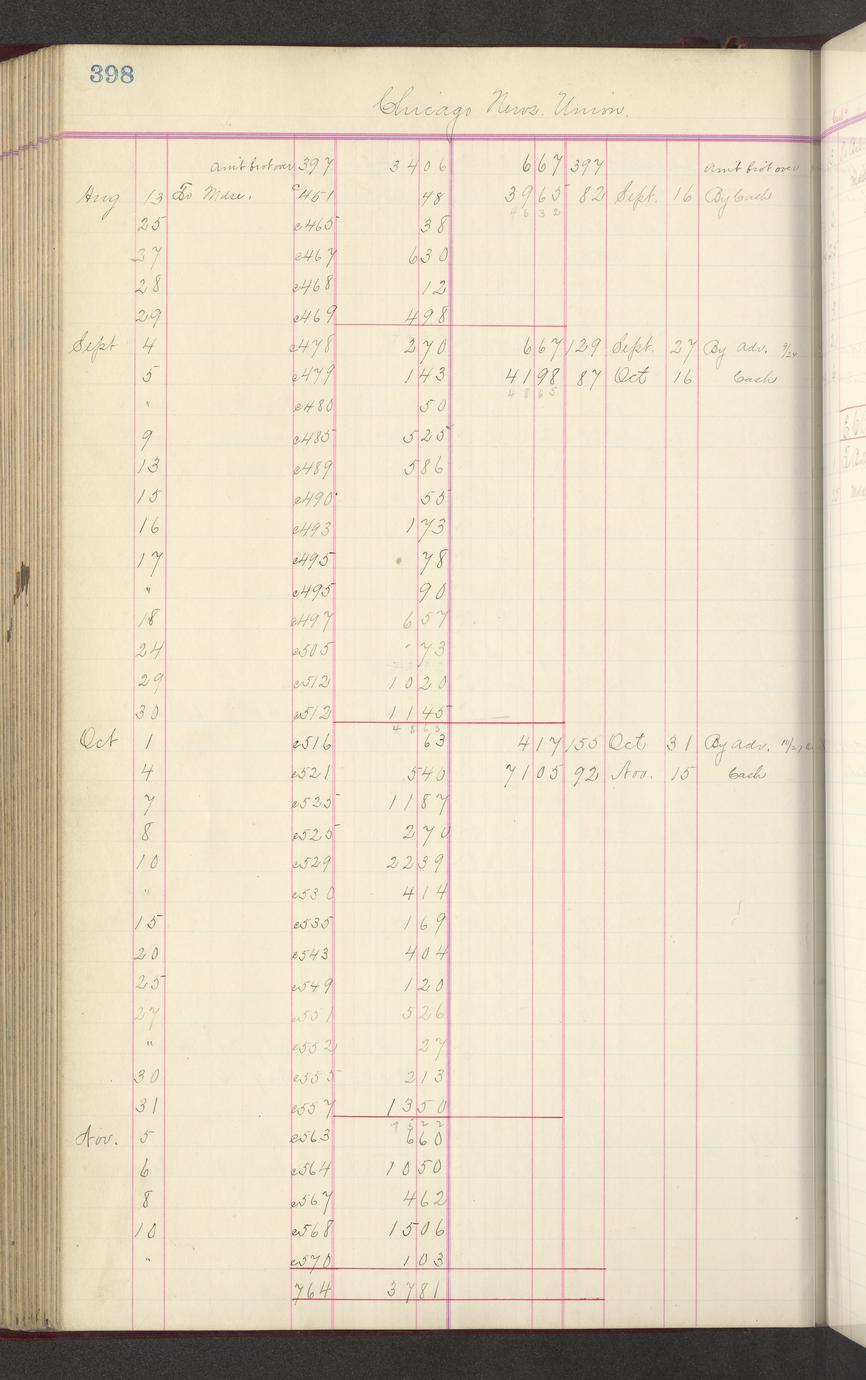 398
Chicago News. Union.
Amt brot over 397 3406 667 397 Amt brot over
Aug 13 To Mdse. c451 48 3965 82 Sept. 16 By Cash
4632
25 c465 38
27 c467 630
28 c468 12
29 c469 498
Sept 4 c478 270 667 129 Sept. 27 By Adv. 9/24
5 c479 143 4198 87 Oct 16 Cash
4865
" c480 50
9 c485 525
13 c489 586
15 c490 55
16 c493 173
17 c495 78
" c495 90
18 c497 657
24 c505 73
29 c512 1020
30 c512 1145
4865
Oct 1 c516 63 417 155 Oct 31 By Adv.
4 c521 540 7105 92 Nov. 15 Cash
7 c525 1187
8 c525 270
10 c529 2239
" c530 414
15 c535 169
20 c543 404
25 c549 120
27 c551 526
" c552 27
30 c555 213
31 c557 1350
7522
Nov. 5 c563 660
6 c564 1050
8 c567 462
10 c568 1506
" c570 103
764 3781